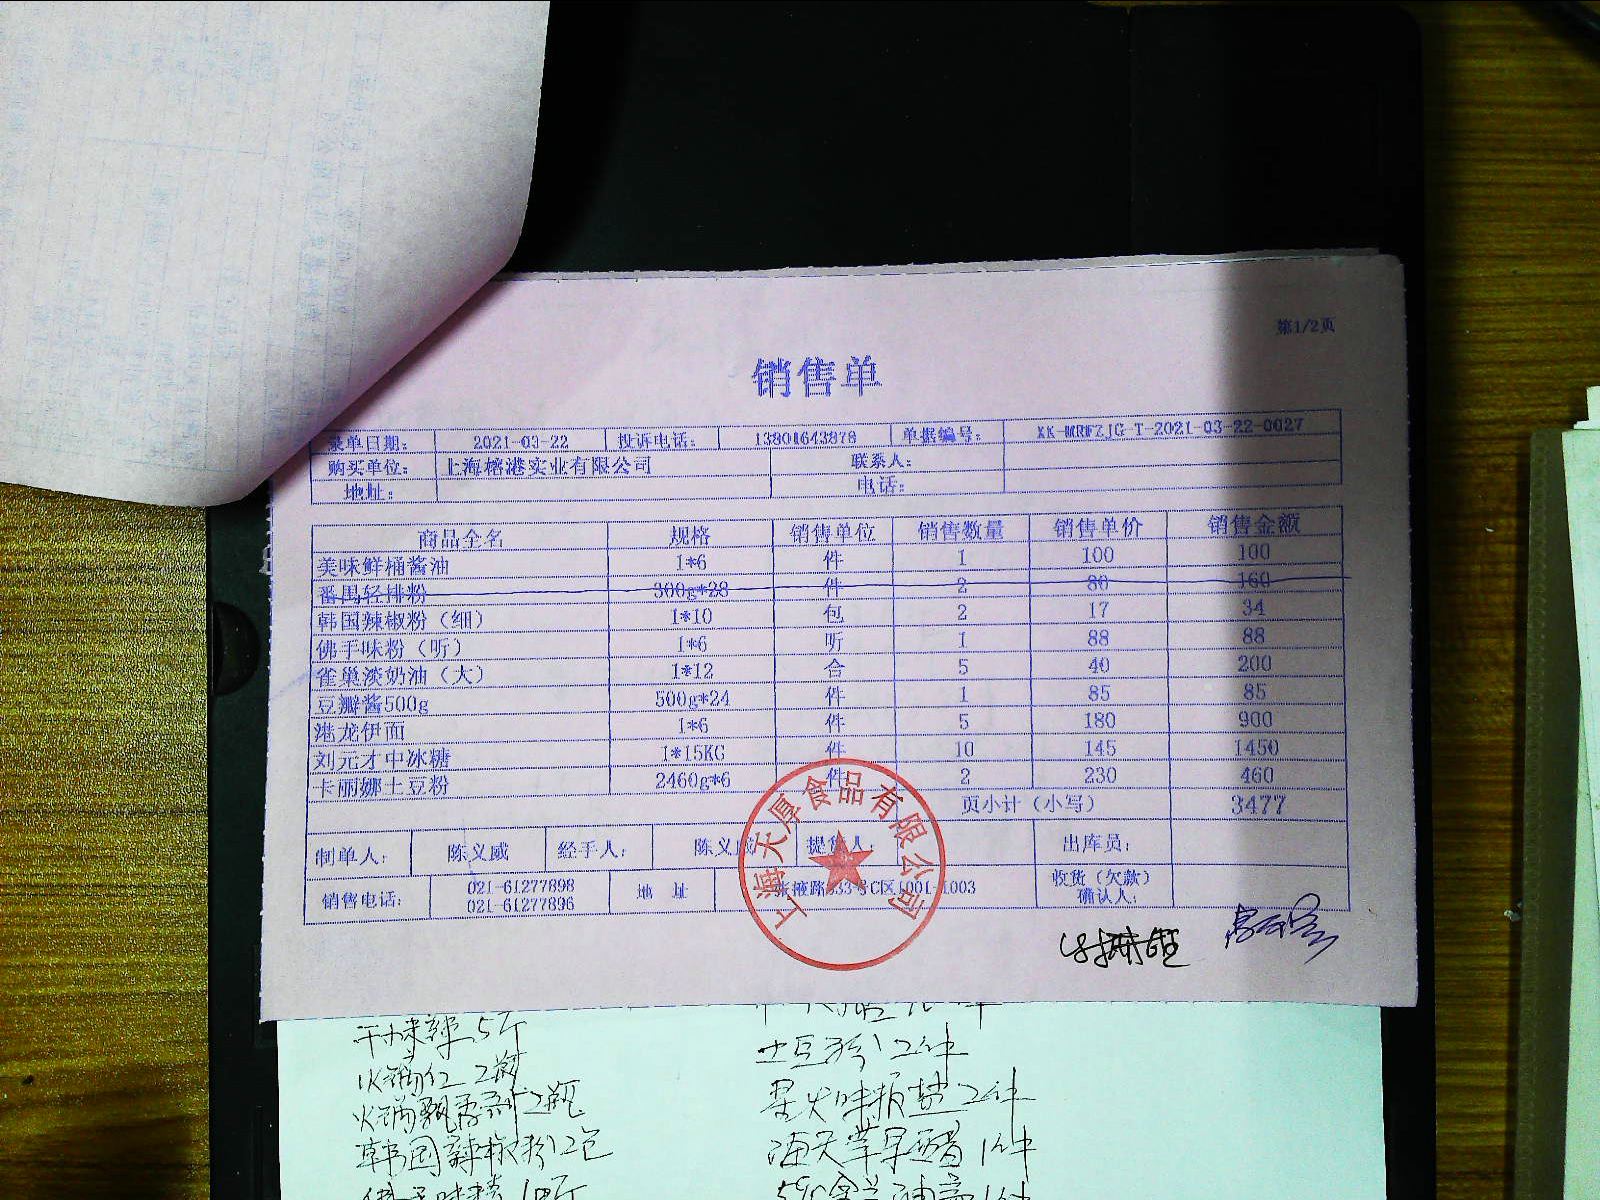 第1/2页
销售单
录单日期: 2021-03-22 投诉电话: 13801643878 单据编号: XK-MRWZJG-T-2021-03-22-0027
购买单位: 上海榕港实业有限公司 联系人:
地址: 电话:
商品全名 规格 销售单位 销售数量 销售单价 销售金额
美味鲜桶酱油 1*6 件 1 100 100
番禺轻排粉 300g*28 件 2 80 160
韩国辣椒粉(细) 1*10 包 2 17 34
佛手味粉(听) 1*6 听 1 88 88
雀巢淡奶油(大) 1*12 合 5 40 200
豆瓣酱500g 500g*24 件 1 85 85
港龙伊面 1*6 件 5 180 900
刘元才中冰糖 1*15KG 件 10 145 1450
卡丽娜土豆粉 2460g*6 件 2 230 460
页小计(小写) 3477
制单人: 陈义威 经手人: 陈义威 提货人: 出库员:
销售电话: 021-61277898 021-61277896 地 址 张掖路333号C区1001-1003 收货(欠款)确认人:
上海天厚食品有限公司
5斤
土豆粉 2件
火锅红 2瓶
火锅飘香剂 2瓶
2件
韩国辣椒粉 2包
海天苹果醋 1件